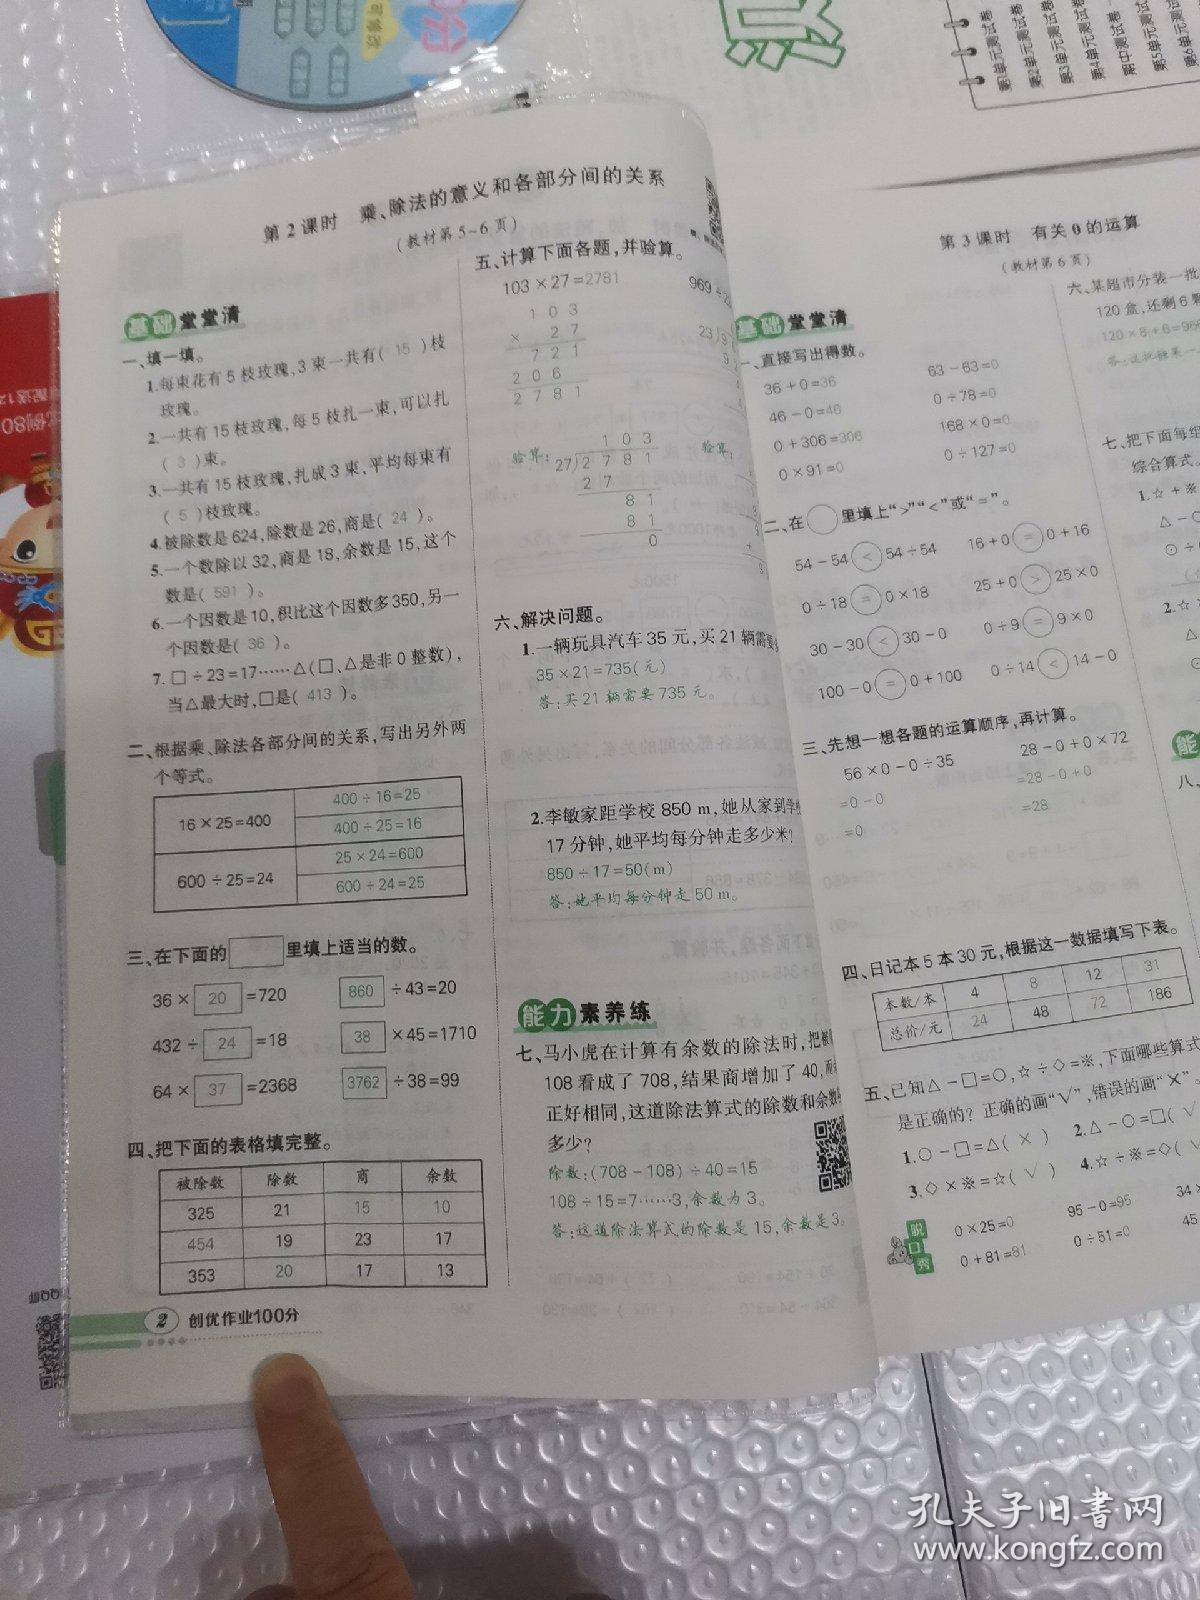 第1单元测试卷
第2单元测试卷
第3单元测试卷
第4单元测试卷
期中测试卷
第5单元测试卷
第6单元测试卷
第2课时 乘、除法的意义和各部分间的关系
(教材第5~6页)
基础 堂堂清
一、填一填。
1.每束花有5枝玫瑰,3束一共有( 15 )枝
玫瑰。
2.一共有15枝玫瑰,每5枝扎一束,可以扎
( 3 )束。
3.一共有15枝玫瑰,扎成3束,平均每束有
( 5 )枝玫瑰。
4.被除数是624,除数是26,商是( 24 )。
5.一个数除以32,商是18,余数是15,这个
数是( 591 )。
6.一个因数是10,积比这个因数多350,另一
个因数是( 36 )。
7.□÷23=17……△(□、△是非0整数),
当△最大时,□是( 413 )。
二、根据乘、除法各部分间的关系,写出另外两
个等式。
16×25=400
400÷16=25
400÷25=16
600÷25=24
25×24=600
600÷24=25
三、在下面的□里填上适当的数。
36× 20 =720 860 ÷43=20
432÷ 24 =18 38 ×45=1710
64× 37 =2368 3762 ÷38=99
四、把下面的表格填完整。
被除数 除数 商 余数
325 21 15 10
454 19 23 17
353 20 17 13
2 创优作业100分
五、计算下面各题,并验算。
103×27=2781 969÷
1 0 3
× 2 7
7 2 1
2 0 6
2 7 8 1
1 0 3
验算: 27 2 7 8 1 验算:
2 7
8 1
8 1
0
六、解决问题。
1.一辆玩具汽车35元,买21辆需要
35×21=735(元)
答:买21辆需要735元。
2.李敏家距学校850 m,她从家到学校
17分钟,她平均每分钟走多少米?
850÷17=50(m)
答:她平均每分钟走50 m。
能力 素养练
七、马小虎在计算有余数的除法时,把被
108看成了708,结果商增加了40,而
正好相同,这道除法算式的除数和余数
多少?
除数:(708-108)÷40=15
108÷15=7……3,余数为3。
答:这道除法算式的除数是15,余数是3。
第3课时 有关0的运算
(教材第6页)
基础 堂堂清
一、直接写出得数。
36+0=36 63-63=0
46-0=46 0÷78=0
0+306=306 168×0=0
0×91=0 0÷127=0
二、在○里填上“>”“<”或“=”。
54-54 < 54÷54 16+0 = 0+16
0÷18 = 0×18 25+0 > 25×0
30-30 < 30-0 0÷9 = 9×0
100-0 = 0+100 0÷14 < 14-0
三、先想一想各题的运算顺序,再计算。
56×0-0÷35 28-0+0×72
=0-0 =28-0+0
=0 =28
四、日记本5本30元,根据这一数据填写下表。
本数/本 4 8 12 31
总价/元 24 48 72 186
五、已知△-□=○,☆÷◇=※,下面哪些算式
是正确的?正确的画“√”,错误的画“×”。
1.○-□=△( × ) 2.△-○=□( √
3.◇×※=☆( √ ) 4.☆÷※=◇( √
脱口秀
0×25=0 95-0=95 34×
0+81=81 0÷51=0 45
六、某超市分装一批
120盒,还剩6颗
120×8+6=966
七、把下面每组
综合算式。
1.☆+※
△-○
⊙÷
2.☆
能
八、
孔夫子旧书网
www.kongfz.com